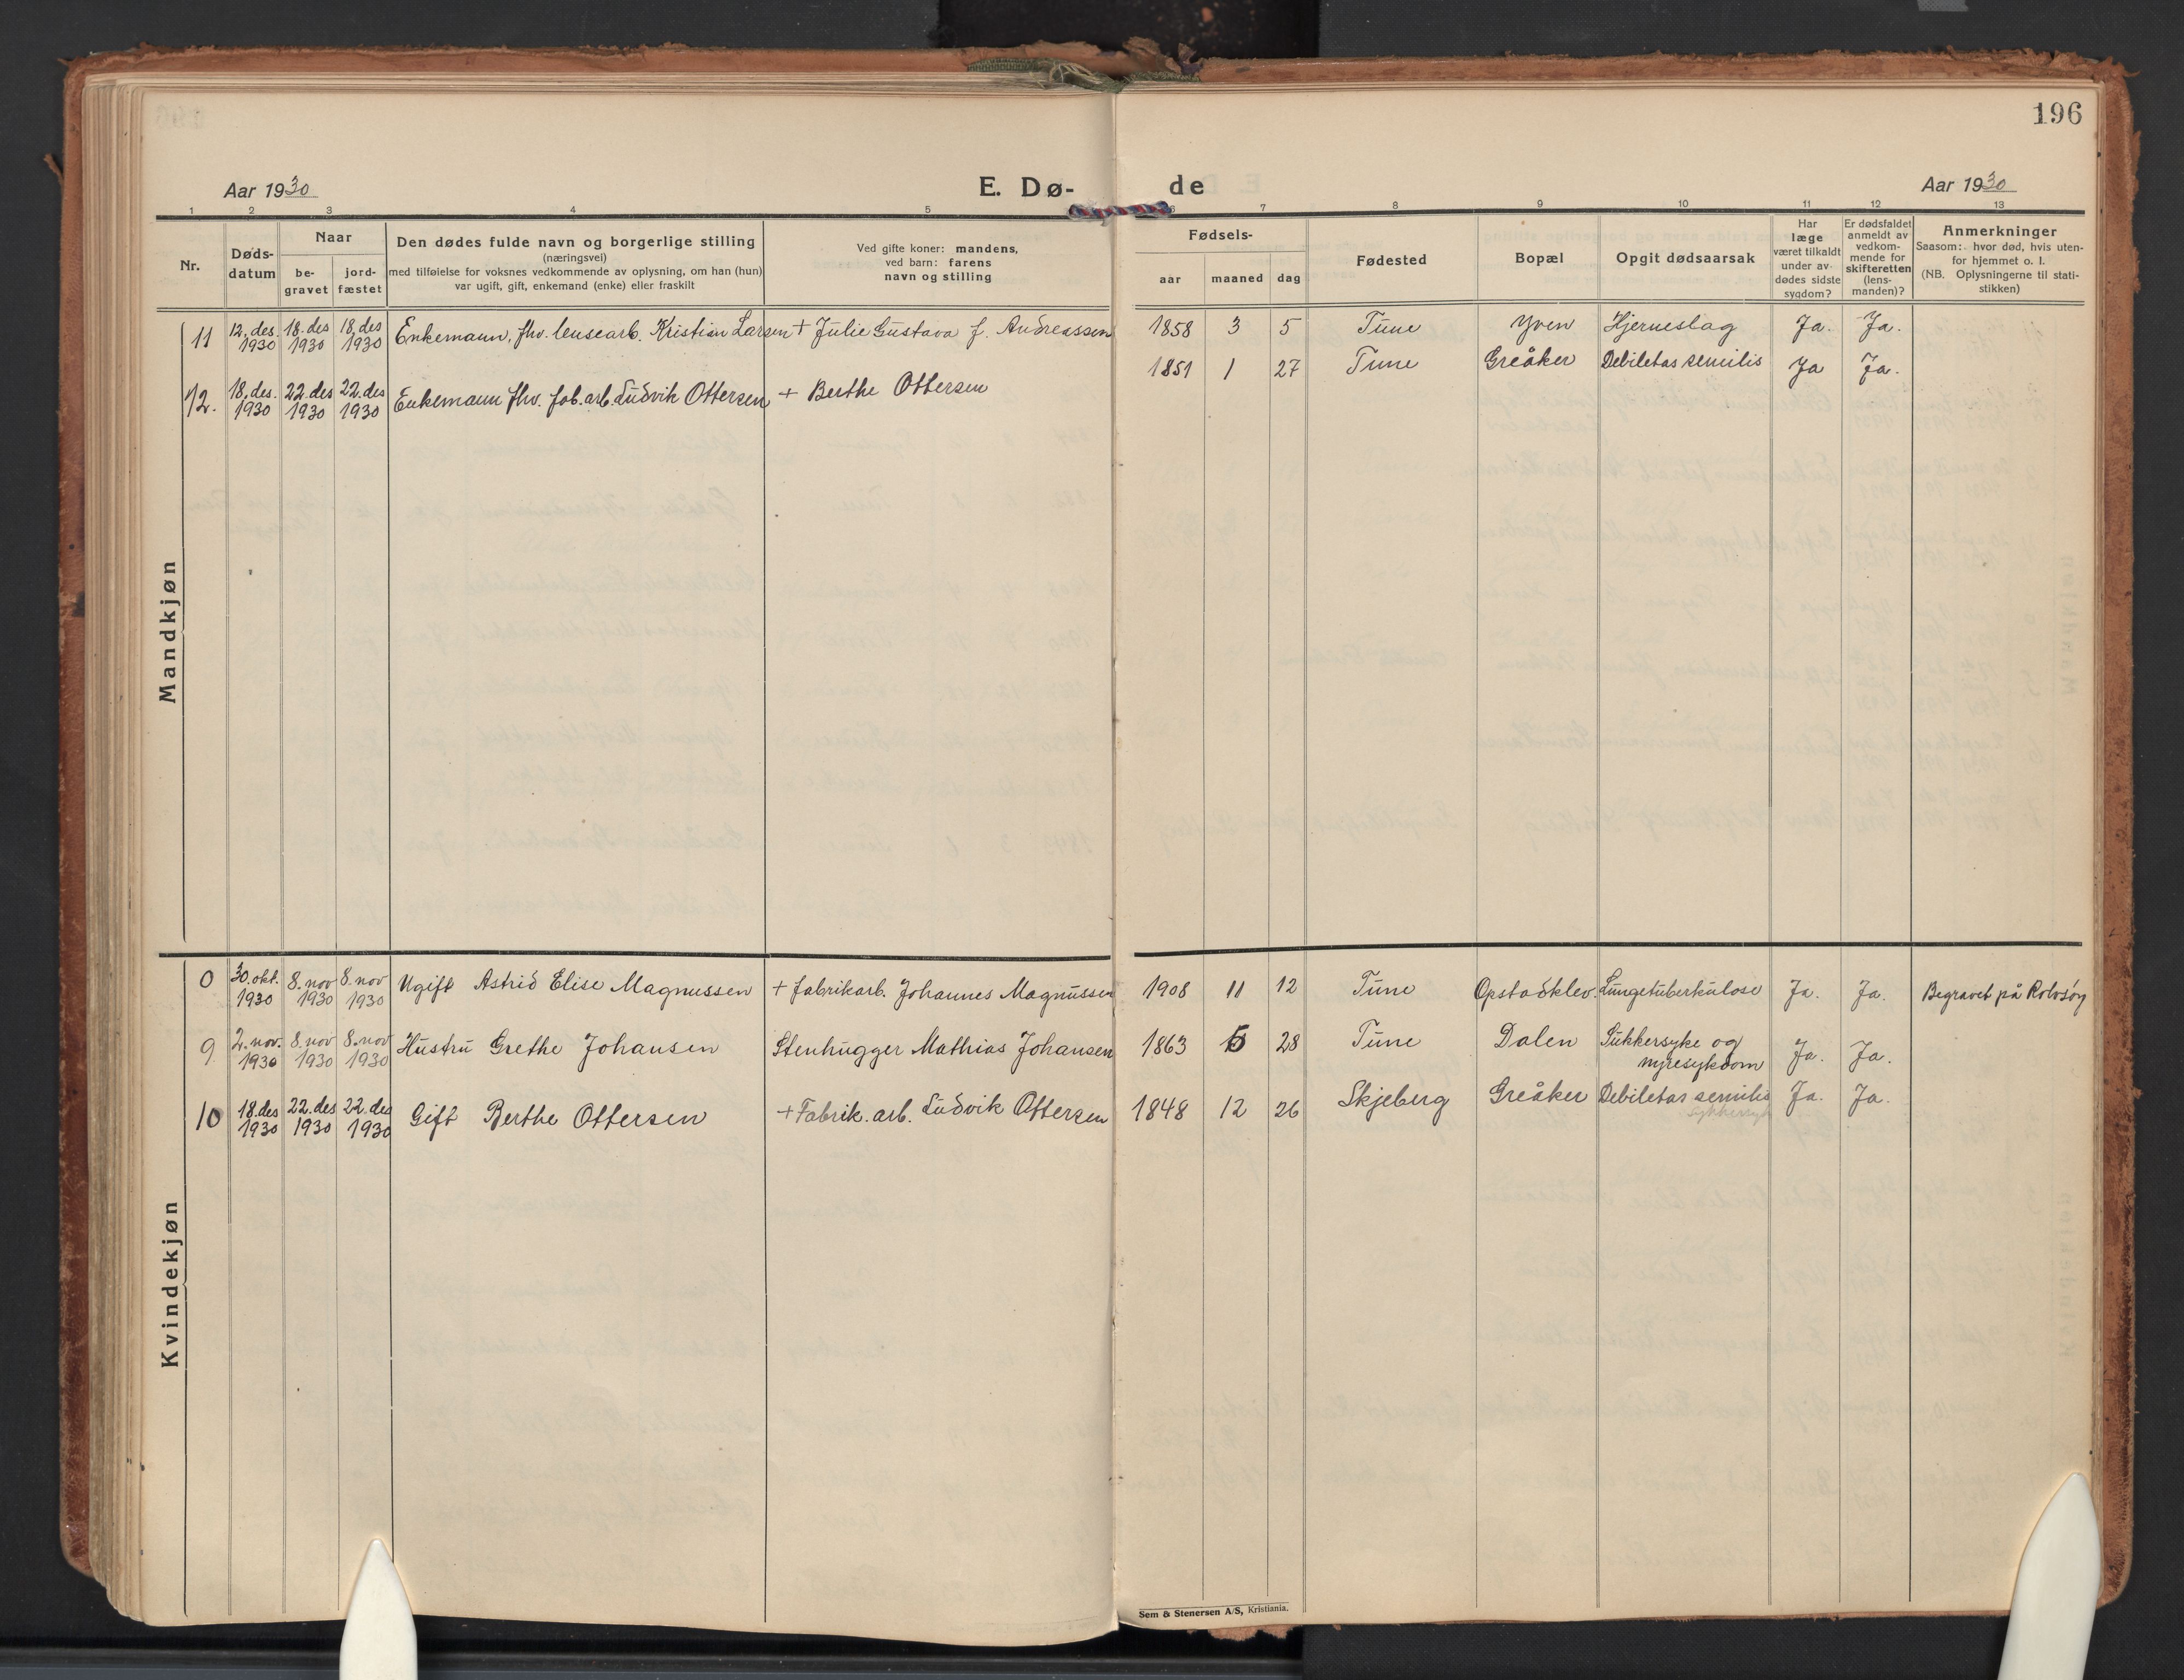 196
Aar 1930
E. Dø-
de
Aar 1930
1 2 3 4 5 6 7 8 9 10 11 12 13
Nr.
Døds-
datum
Naar
be-
gravet
jord-
fæstet
Den dødes fulde navn og borgerlige stilling
(næringsvei)
med tilføielse for voksnes vedkommende av oplysning, om han (hun)
var ugift, gift, enkemand (enke) eller fraskilt
Ved gifte koner: mandens,
ved barn: farens
navn og stilling
Fødsels-
aar maaned dag
Fødested
Bopæl
Opgit dødsaarsak
Har
læge
været tilkaldt
under av-
dødes sidste
sygdom?
Er dødsfaldet
anmeldt av
vedkom-
mende for
skifteretten
(lens-
manden)?
Anmerkninger
Saasom: hvor død, hvis uten-
for hjemmet o. l.
(NB. Oplysningerne til stati-
stikken)
Mandkjøn
11 12. des. 1930 18. des 1930 18. des 1930 Enkemann, fhv. lensearb. Kristian Larsen + Julie Gustava f. Andreassen 1858 3 5 Tune Yven Hjerneslag Ja. Ja.
12. 18. des. 1930 22. des 1930 22. des 1930 Enkemann fhv. fab. arb. Ludvik Ottersen + Berthe Ottersen 1851 1 27 Tune Greåker Debiletas senilis Ja Ja.
Kvindekjøn
0 30. okt. 1930 8. nov 1930 8. nov 1930 Ugift Astrid Elise Magnussen + fabrikarb. Johannes Magnussen 1908 11 12 Tune Opstadklev. Lungetuberkulose Ja. Ja. Begravet på Rolvsøy
9 2. nov. 1930 8. nov 1930 8. nov 1930 Hustru Grethe Johansen Stenhugger Mathias Johansen 1863 5 28 Tune Dalen Sukkersyke og
nyresykdom Ja. Ja.
10 18. des 1930 22. des 1930 22. des 1930 Gift Berthe Ottersen + Fabrik. arb. Ludvik Ottersen 1848 12 26 Skjeberg Greåker Debiletas senilis Ja. Ja.
Sem & Stenersen A/S, Kristiania.